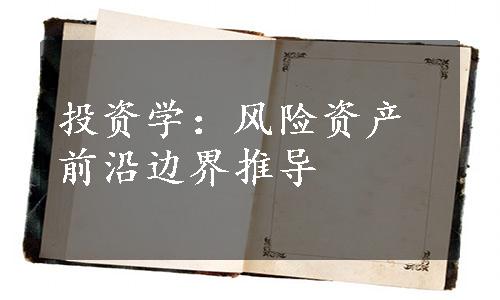 投资学：风险资产
前沿边界推导